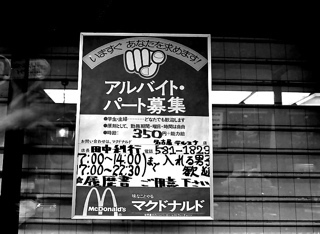 いますぐ あなたを求めます!
アルバイト・
パート募集
●学生・主婦……どなたでも歓迎します
●原則として、勤務期間・曜日・時間は自由
●時給: 350円・能力給
お問い合わせは、マクドナルド
店長 田中 電話 531-1829
7:00〜14:00 まで 入れる男子
7:00〜22:30 歓迎
履歴書ご持参下さい
味なことやる
McDonald's マクドナルド